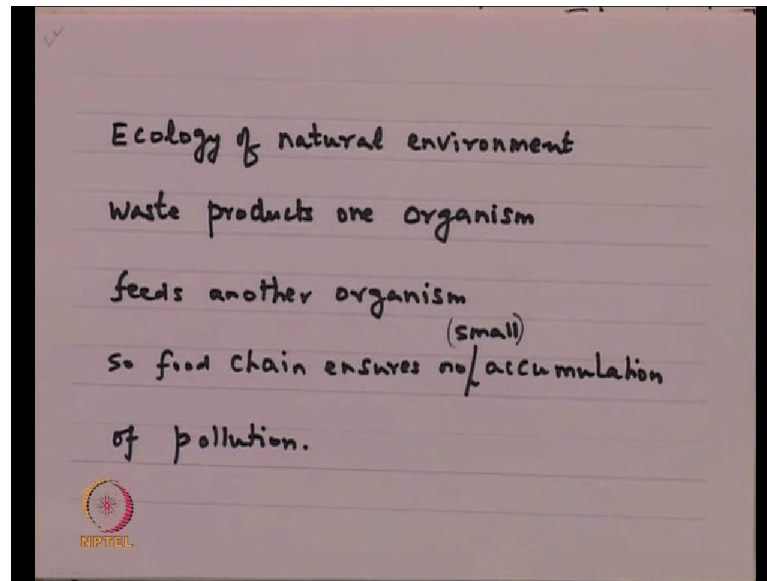 Ecology of natural environment
waste products one organism
feeds another organism
(small)
so food chain ensures no/accumulation
of pollution.
NPTEL